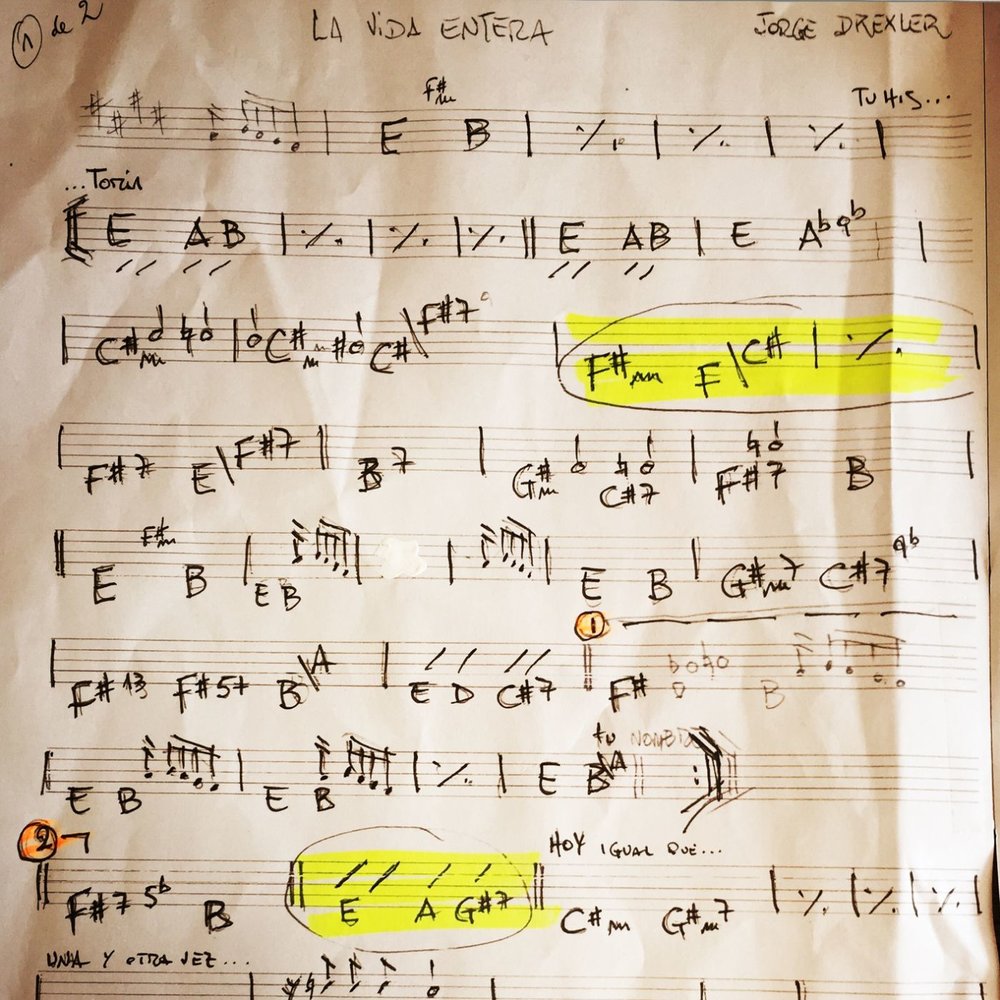 1 de 2 LA VIDA ENTERA JORGE DREXLER
F#m TU HIS...
E B
...Toria
E A B E A B E Ab 9b
C#m C#m C# \ F#7 F#m E \ C#
F#7 E \ F#7 B7 G#m C#7 F#7 B
F#m
E B E B E B G#m7 C#7 9b
1
F#13 F#5+ B\A E D C#7 F# B
tu NOMBRE
E B E B E B\A
2
HOY IGUAL QUE...
F#7 5b B E A G#7 C#m G#m7
UNA Y OTRA VEZ...